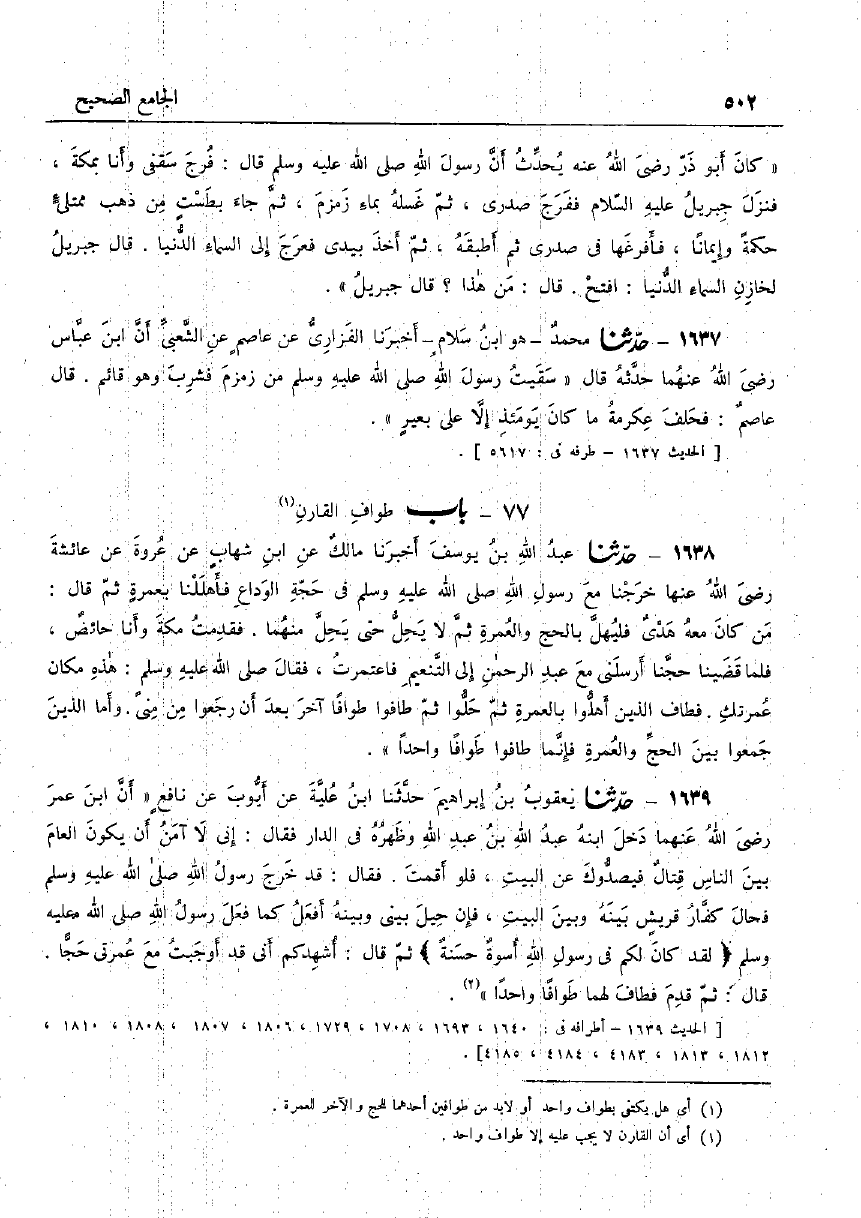 ٥٠٢ الجامع الصحيح
« كانَ أبو ذَرّ رضىَ اللهُ عنه يُحدِّثُ أنَّ رسولَ اللهِ صلى الله عليه وسلم قال : فُرِجَ سَقفى وأنا بمكةَ ،
فنزلَ جِبريلُ عليهِ السّلام ففَرَجَ صدرى ، ثمّ غَسلهُ بماءِ زَمزمَ ، ثمَّ جاءَ بطَسْتٍ مِن ذهب ممتلىءٍ
حكمةً وإيمانًا ، فأفرغَها فى صدرى ثم أطبقَهُ ، ثمّ أخذَ بيدى فعرَجَ إلى السماءِ الدُّنيا . قال جبريلُ
لخازنِ السماء الدُّنيا : افتحْ . قال : مَن هٰذا ؟ قال جبريلُ » .
١٦٣٧ – حدّثنا محمدٌ – هو ابنُ سَلام – أخبرَنا الفَزارىُّ عن عاصمٍ عنِ الشَّعبىِّ أنَّ ابنَ عبَّاس
رضىَ اللهُ عنهُما حدَّثهُ قال « سَقَيتُ رسولَ اللهِ صلى الله عليهِ وسلم من زمزمَ فشربَ وهو قائم . قال
عاصمٌ : فحَلفَ عِكرمةُ ما كانَ يَومَئذٍ إلَّا على بعيرٍ » .
[ الحديث ١٦٣٧ – طرفه فى : ٥٦١٧ ] .
٧٧ – باب طوافِ القارنِ(١)
١٦٣٨ – حدّثنا عبدُ اللهِ بنُ يوسفَ أخبرَنا مالكٌ عنِ ابنِ شهابٍ عن عُروةَ عن عائشةَ
رضىَ اللهُ عنها خرَجْنا معَ رسولِ اللهِ صلى الله عليهِ وسلم فى حَجّةِ الوَداعِ فأهلَلْنا بعمرةٍ ثمّ قال :
مَن كانَ معه هَدْىٌ فليُهلَّ بالحج والعُمرةِ ثمَّ لا يَحِلُّ حتى يَحِلَّ منهُما . فقدِمتُ مكةَ وأنا حائضٌ ،
فلما قَضَينا حجَّنا أرسلَنى معَ عبدِ الرحمٰنِ إلى التَّنعيمِ فاعتمرتُ ، فقالَ صلى الله عليهِ وسلم : هٰذهِ مكان
عُمرتكِ . فطاف الذين أهلُّوا بالعمرةِ ثمّ حَلُّوا ثمّ طافوا طوافًا آخرَ بعدَ أن رجَعوا مِن مِنىً . وأما الذينَ
جمعوا بينَ الحجِّ والعُمرةِ فإنَّما طافوا طَوافًا واحداً » .
١٦٣٩ – حدّثنا يَعقوبُ بنُ إبراهيمَ حدَّثَنا ابنُ عُليَّةَ عن أيُّوبَ عن نافعٍ « أنَّ ابنَ عمرَ
رضىَ اللهُ عَنهما دَخلَ ابنهُ عبدُ اللهِ بنُ عبدِ اللهِ وظَهرُهُ فى الدار فقال : إنى لَا آمَنُ أن يكونَ العامَ
بينَ الناسِ قِتالٌ فيصدُّوكَ عن البيتِ ، فلو أقمتَ . فقال : قد خَرجَ رسولُ اللهِ صلىٰ الله عليهِ وسلم
فحالَ كفَّارُ قريشٍ بَينَهُ وبينَ البيتِ ، فإن حِيلَ بينى وبينهُ أفعَلُ كما فعَلَ رسولُ اللهِ صلى الله عليه
وسلم ﴿ لقد كانَ لكم فى رسولِ اللهِ أسوةٌ حسَنةٌ ﴾ ثمّ قال : أُشهِدكم أنى قد أوجَبتُ معَ عمرتى حَجًّا .
قال : ثمّ قدِمَ فطافَ لهما طَوافًا واحدًا »(٢) .
[ الحديث ١٦٣٩ – أطرافه فى : ١٦٤٠ ، ١٦٩٣ ، ١٧٠٨ ، ١٧٢٩ ، ١٨٠٦ ، ١٨٠٧ ، ١٨٠٨ ، ١٨١٠ ،
١٨١٢ ، ١٨١٣ ، ٤١٨٣ ، ٤١٨٤ ، ٤١٨٥] .
(١) أى هل يكتفى بطواف واحد أو لابد من طوافين أحدهما للحج والآخر العمرة .
(١) أى أن القارن لا يجب عليه إلا طواف واحد .